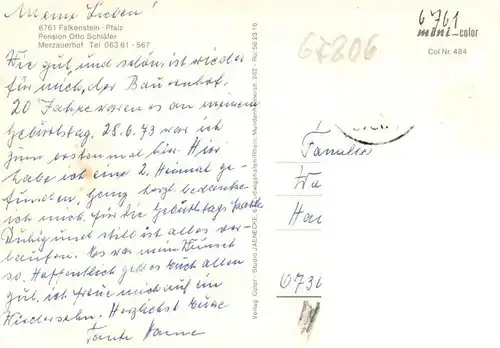 Meine Lieben!
6761 Falkenstein - Pfalz
Pension Otto Schläfer
Merzauerhof Tel 063 61 - 567
Wie gut und schön ist wieder
für mich, der Bauernhof.
20 Jahre waren es an meinem
Geburtstag. 28.6.73 war ich
zum erstenmal hier. Hier
habe ich eine 2. Heimat ge-
funden. Ganz herzl. bedanke
ich mich für die Geburtstags
Ruhig und still ist alles ver-
laufen. Es war mein Wunsch
so. Hoffentlich geht es Euch allen
gut. ich freue mich auf ein
Wiedersehn. Herzlichst Eure
Tante
Verlag Color - Studio JAENECKE, 6 Ludwigshafen/Rhein, Mundenheimerstr. 262 - Ruf 56 23 16
67806
6761
mini-color
Col Nr. 484
Familie
Wa
Ha
0730